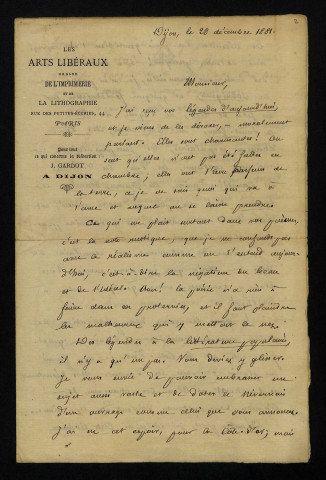 Dijon, le 28 décembre 1881.
LES
ARTS LIBÉRAUX
ORGANE
DE L'IMPRIMERIE
ET DE
LA LITHOGRAPHIE
RUE DES PETITES-ÉCURIES, 41
PARIS
Pour tout
ce qui concerne la Rédaction
J. GARDOT
A DIJON
Monsieur,
J'ai reçu vos légendes d'aujourd'hui,
et je viens de les dévorer, — moralement
parlant. Elles sont charmantes ! On
sent qu'elles n'ont pas été faites en
chambre ; elles ont l'âcre parfum de
la terre, ce je ne sais quoi qui va à
l'âme et auquel on se laisse prendre.
Ce qui me plaît surtout dans vos poésies
c'est la note rustique, que je ne confonds pas
avec le réalisme comme on l'entend aujour-
d'hui, c'est-à-dire la négation du beau
et de l'idéal. Oui ! la poésie n'a rien à
faire dans ce, et il faut plaindre
les malheureux qui y mettent le nez.
Des légendes à la littérature populaire,
il n'y a qu'un pas. Vous deviez y glisser.
Je vous envie de pouvoir embrasser un
sujet aussi vaste et de doter le Nivernais
d'un ouvrage comme celui que vous annoncez.
J'ai eu cet espoir, pour la Côte-d'Or ; mais